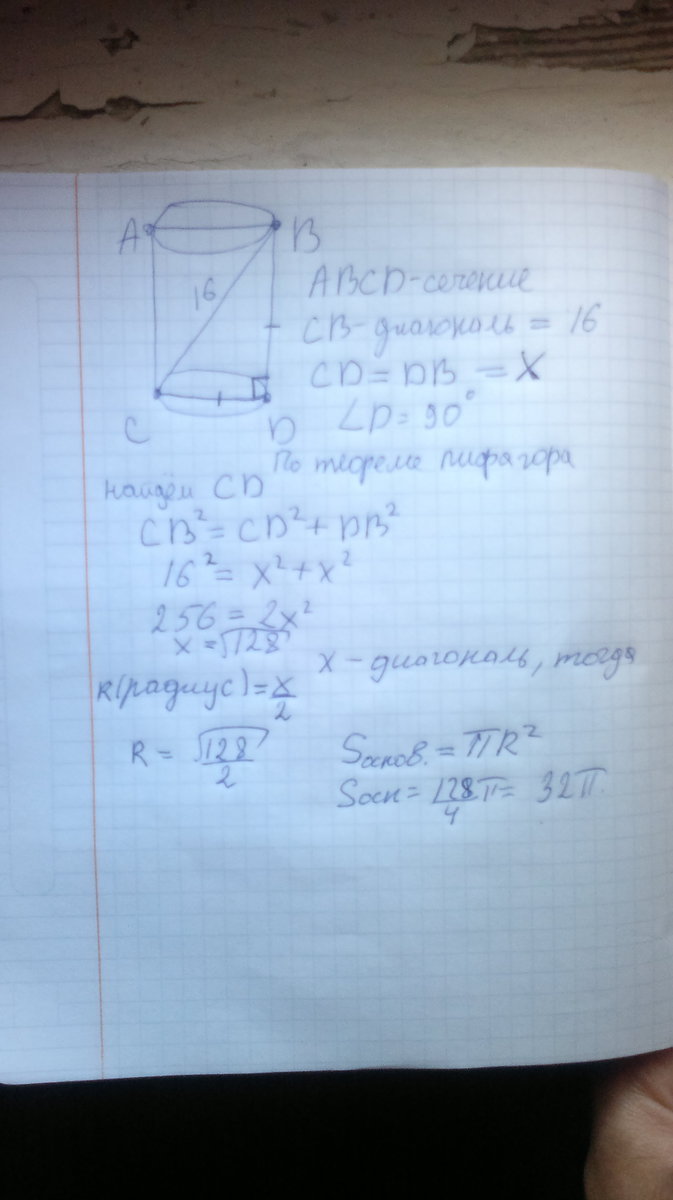 A
B
16
C
D
ABCD-сечение
CB-диагональ = 16
CD = DB = X
∠D = 90°
По теореме пифагора
найдём CD
CB² = CD² + DB²
16² = x² + x²
256 = 2x²
x = √128
x - диагональ, тогда
R(радиус) = x/2
R = √128/2
Sоснов. = πR²
Sосн = 128/4 π = 32π.